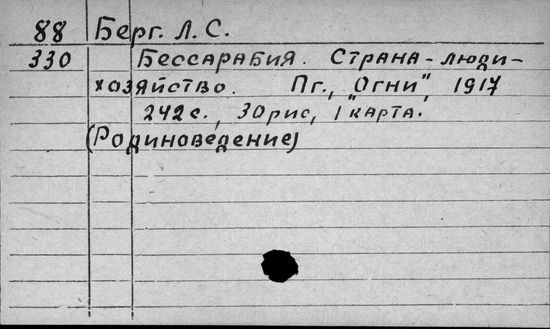 88 Берг. Л. С.
330 Бессарабия. Страна - люди -
хозяйство. Пг., "Огни", 1917
242 с., 30 рис, 1 карта.
(Родиноведение)